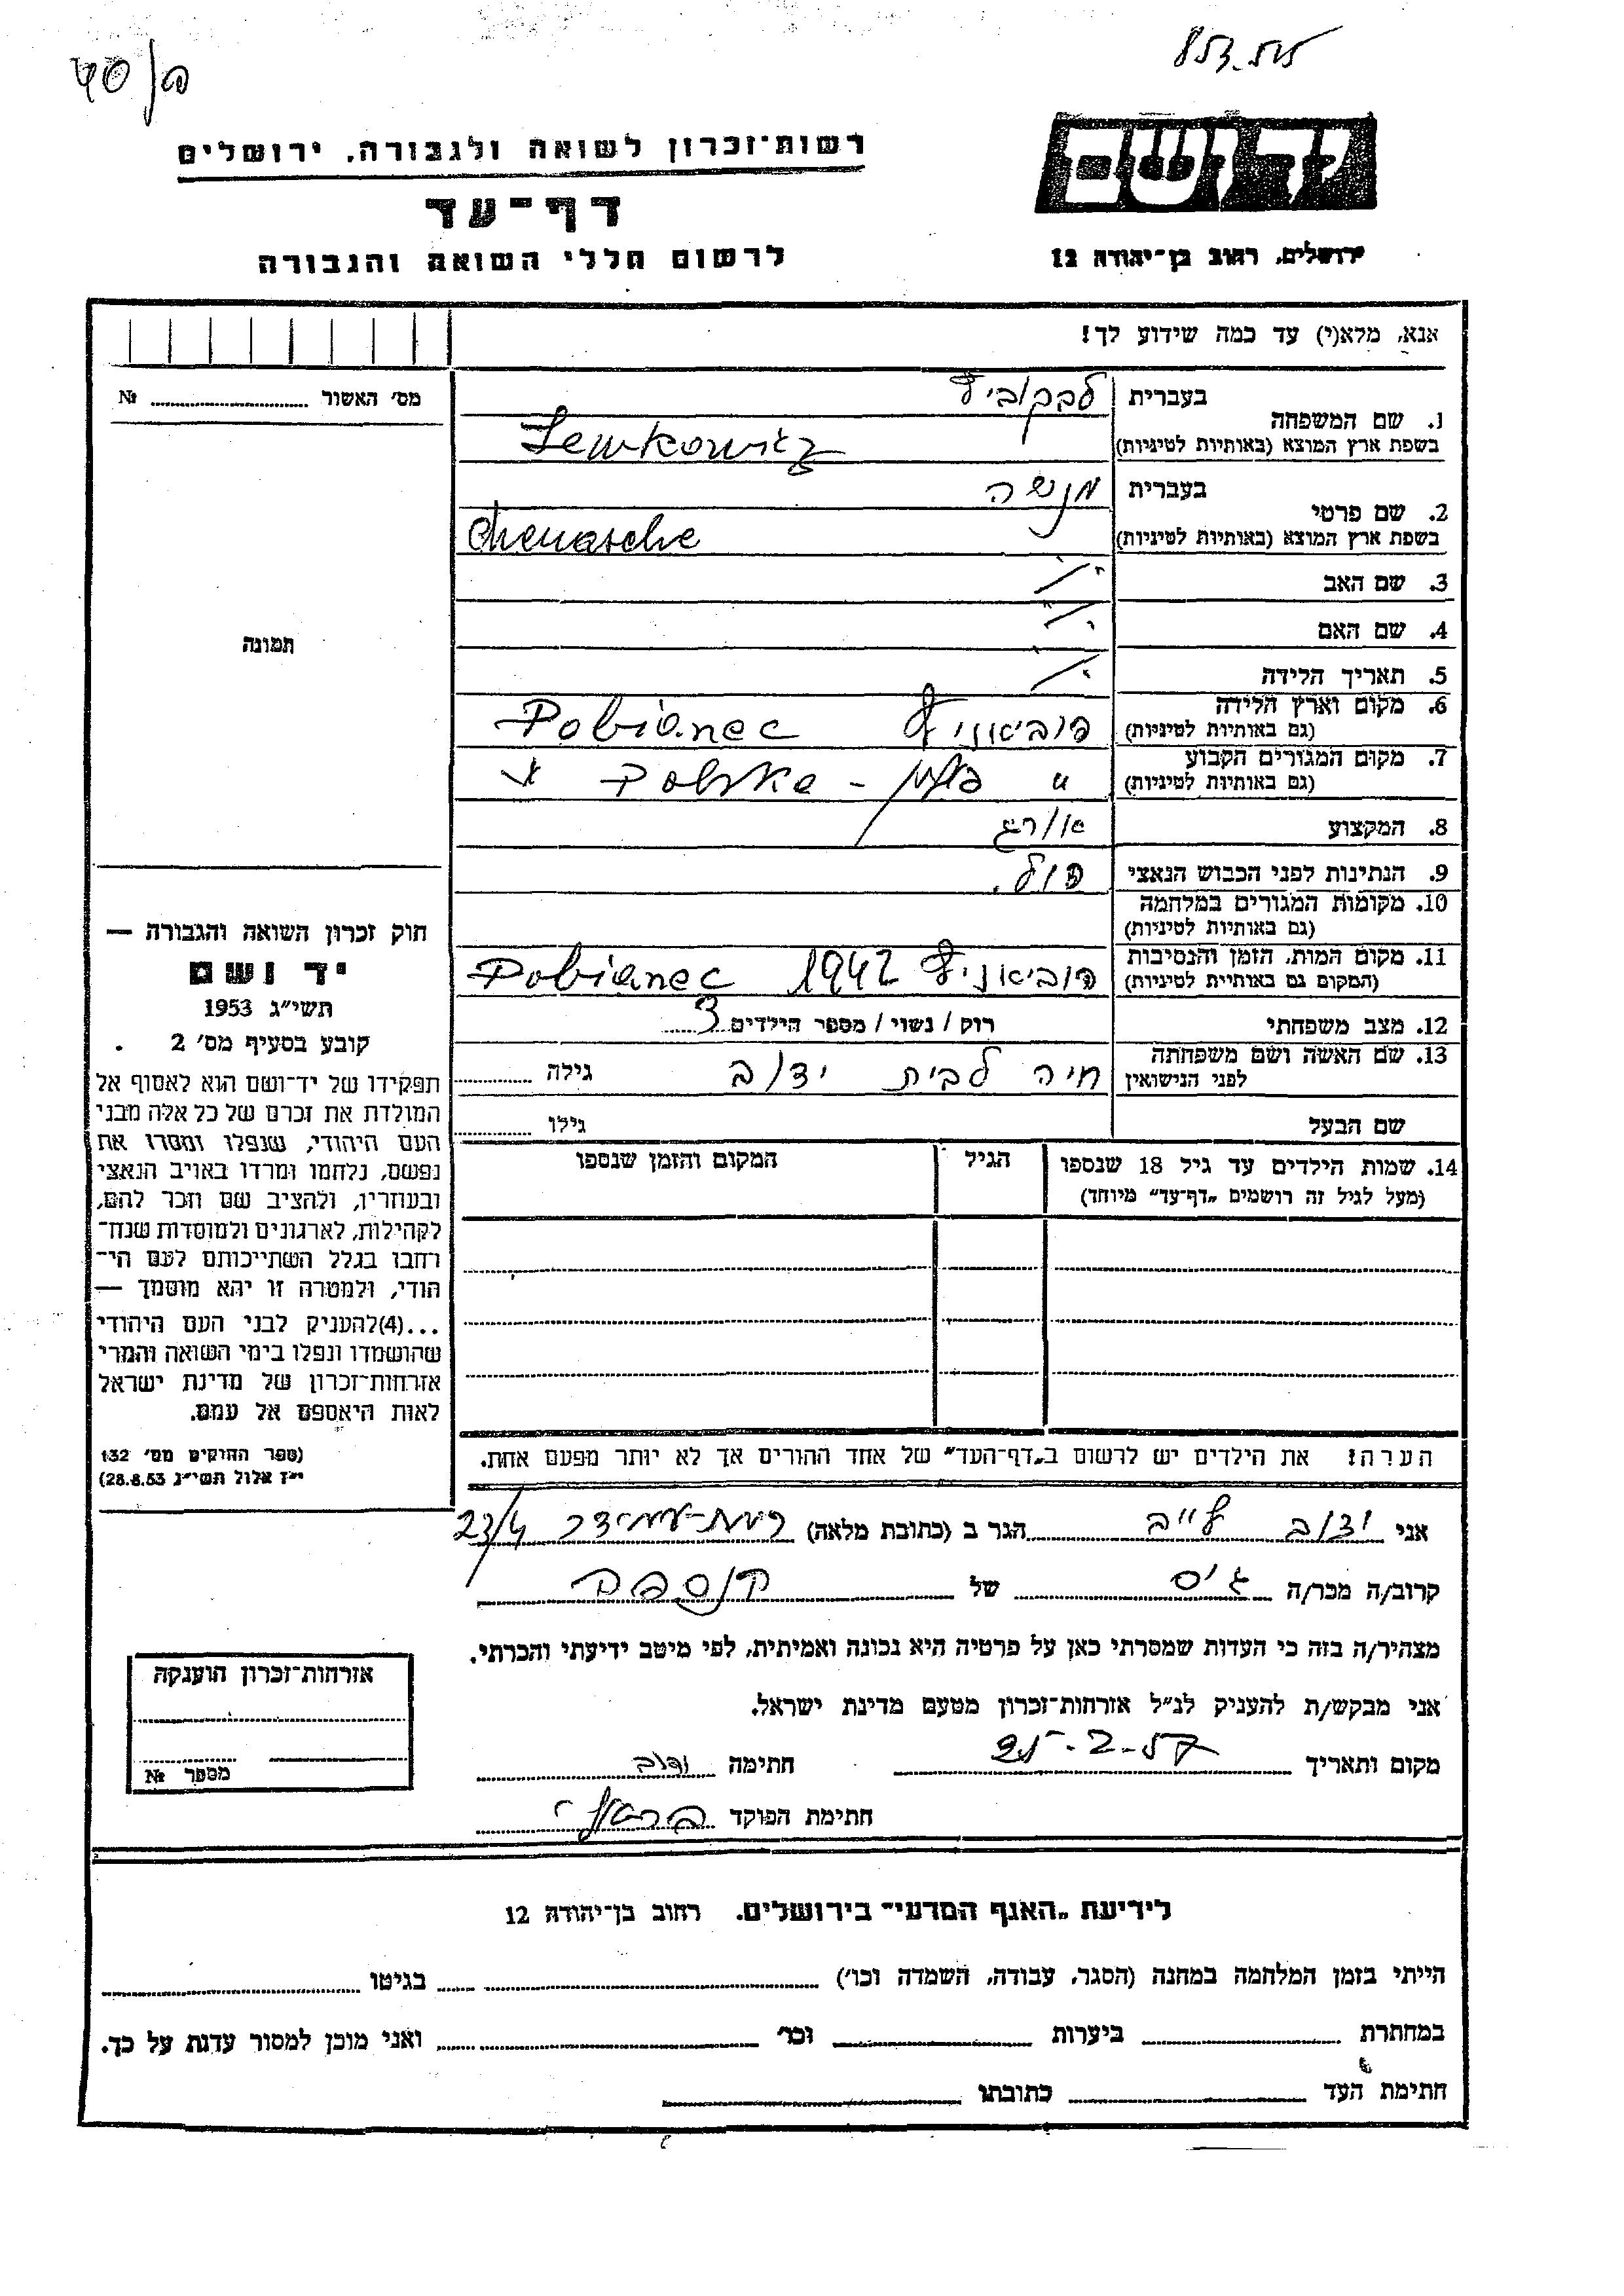 רשות־זכרון לשואה ולגבורה, ירושלים
דף־עד
לרשום חללי השואה והגבורה
יד ושם
ירושלים, רחוב בן־יהודה 12
אנא, מלא(י) עד כמה שידוע לך!
מס׳ האשור № ........
1. שם המשפחה בעברית לבקוביץ
בשפת ארץ המוצא (באותיות לטיניות) Lewkowicz
2. שם פרטי בעברית מנשה
בשפת ארץ המוצא (באותיות לטיניות) Menasche
3. שם האב
4. שם האם
5. תאריך הלידה
6. מקום וארץ הלידה
(גם באותיות לטיניות) פוביאניץ Pobianec
7. מקום המגורים הקבוע
(גם באותיות לטיניות) " פולין - Polska
8. המקצוע אורג
9. הנתינות לפני הכבוש הנאצי פול.
10. מקומות המגורים במלחמה
(גם באותיות לטיניות)
11. מקום המות, הזמן והנסיבות
(המקום גם באותיות לטיניות) פוביאניץ 1942 Pobianec
12. מצב משפחתי רווק / נשוי / מספר הילדים 3
13. שם האשה ושם משפחתה
לפני הנישואין חיה לבית גילה
שם הבעל גילו
14. שמות הילדים עד גיל 18 שנספו הגיל המקום והזמן שנספו
(מעל לגיל זה רושמים „דף־עד״ מיוחד)
הערה: את הילדים יש לרשום ב„דף־העד״ של אחד ההורים אך לא יותר מפעם אחת.
תמונה
חוק זכרון השואה והגבורה —
יד ושם
תשי״ג 1953
קובע בסעיף מס׳ 2
תפקידו של יד־ושם הוא לאסוף אל
המולדת את זכרם של כל אלה מבני
העם היהודי, שנפלו ומסרו את
נפשם, נלחמו ומרדו באויב הנאצי
ובעוזריו, ולהציב שם וזכר להם,
לקהילות, לארגונים ולמוסדות שנח־
רבו בגלל השתייכותם לעם הי־
הודי, ולמטרה זו יהא מוסמך —
...(4) להעניק לבני העם היהודי
שהושמדו ונפלו בימי השואה והמרי
אזרחות־זכרון של מדינת ישראל
לאות היאספם אל עמם.
(ספר החוקים מס׳ 132
י״ז אלול תשי״ג 28.8.53)
אני הגר ב (כתובת מלאה) רמת-עמידר 23/4
קרוב/ה מכר/ה גיס של הנספה
מצהיר/ה בזה כי העדות שמסרתי כאן על פרטיה היא נכונה ואמיתית, לפי מיטב ידיעתי והכרתי.
אני מבקש/ת להעניק לנ״ל אזרחות־זכרון מטעם מדינת ישראל.
מקום ותאריך חתימה
חתימת הפוקד
אזרחות־זכרון הוענקה
מספר №
לידיעת „האגף המדעי״ בירושלים. רחוב בן־יהודה 12
הייתי בזמן המלחמה במחנה (הסגר, עבודה, השמדה וכו׳) בגיטו
במחתרת ביערות וכו׳ ואני מוכן למסור עדות על כך.
חתימת העד כתובתו